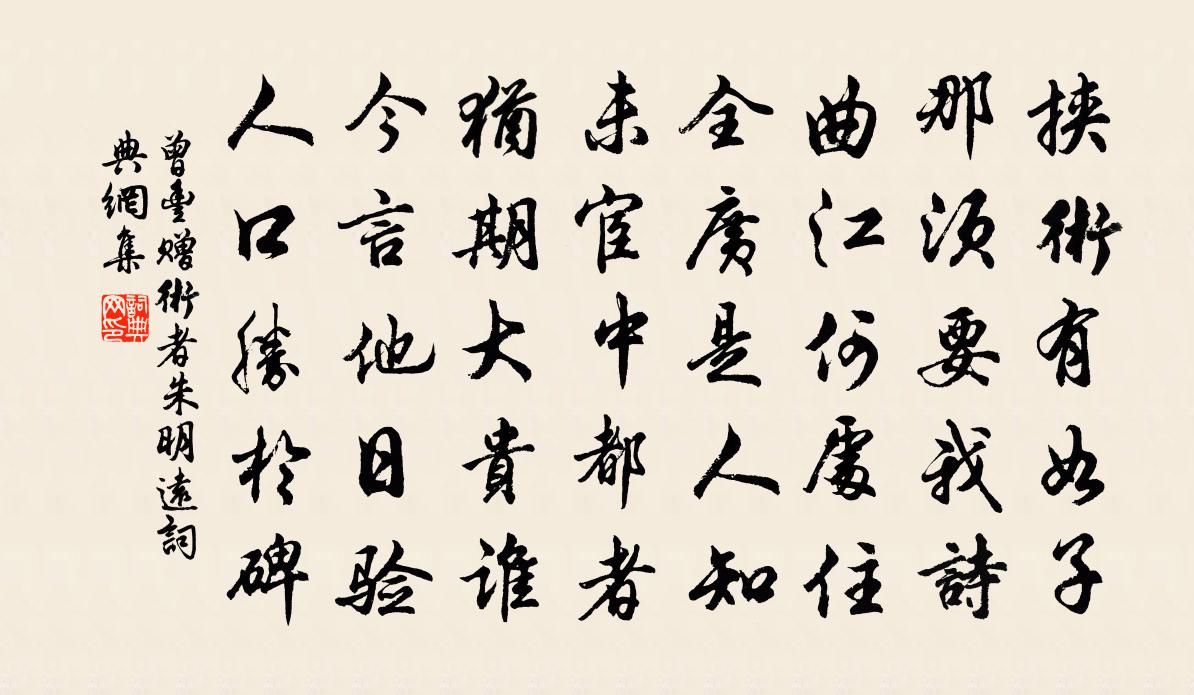 挟術有如子
那須要我詩
曲江何處住
全廣是人知
未宦中都者
猶期大貴誰
今言他日验
人口勝於碑
曾豊赠術者朱明遠詞
典網集
詞典
网印